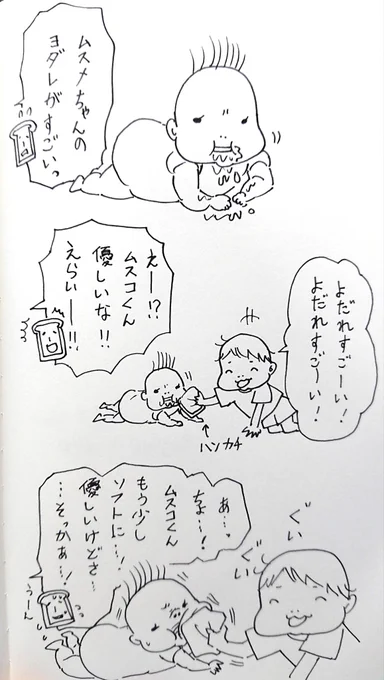 ムスメちゃんの
ヨダレがすごいっ
よだれすごーい！
よだれすご〜い！
えー!?
ムスコくん
優しいな!!
えらいー!!
ハンカチ
ぐい
ぐい
あ…、
ちょ…！
ムスコくん
もう少し
ソフトに…！
優しいけどさ…
…そっかぁ…！
うーん